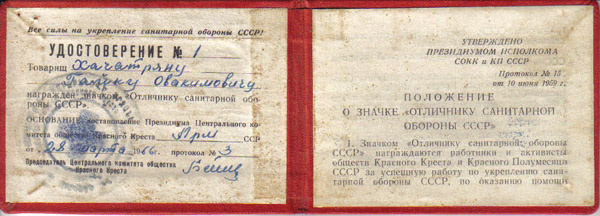 Все силы на укрепление санитарной обороны СССР!
УДОСТОВЕРЕНИЕ № 1
Товарищ Хачатряну
Гайку Овакимовичу
награжден значком «Отличнику санитарной обо-
роны СССР».
ОСНОВАНИЕ: постановление Президиума Центрального ко-
митета общества Красного Креста Арм ССР
от „28" марта 1966 г. протокол № 3
Председатель Центрального комитета общества
Красного Креста
УТВЕРЖДЕНО
ПРЕЗИДИУМОМ ИСПОЛКОМА
СОКК и КП СССР
Протокол № 15
от 10 июня 1959 г.
ПОЛОЖЕНИЕ
О ЗНАЧКЕ «ОТЛИЧНИКУ САНИТАРНОЙ
ОБОРОНЫ СССР»
1. Значком «Отличнику санитарной обороны
СССР» награждаются работники и активисты
обществ Красного Креста и Красного Полумесяца
СССР за успешную работу по укреплению сани-
тарной обороны СССР, по оказанию помощи